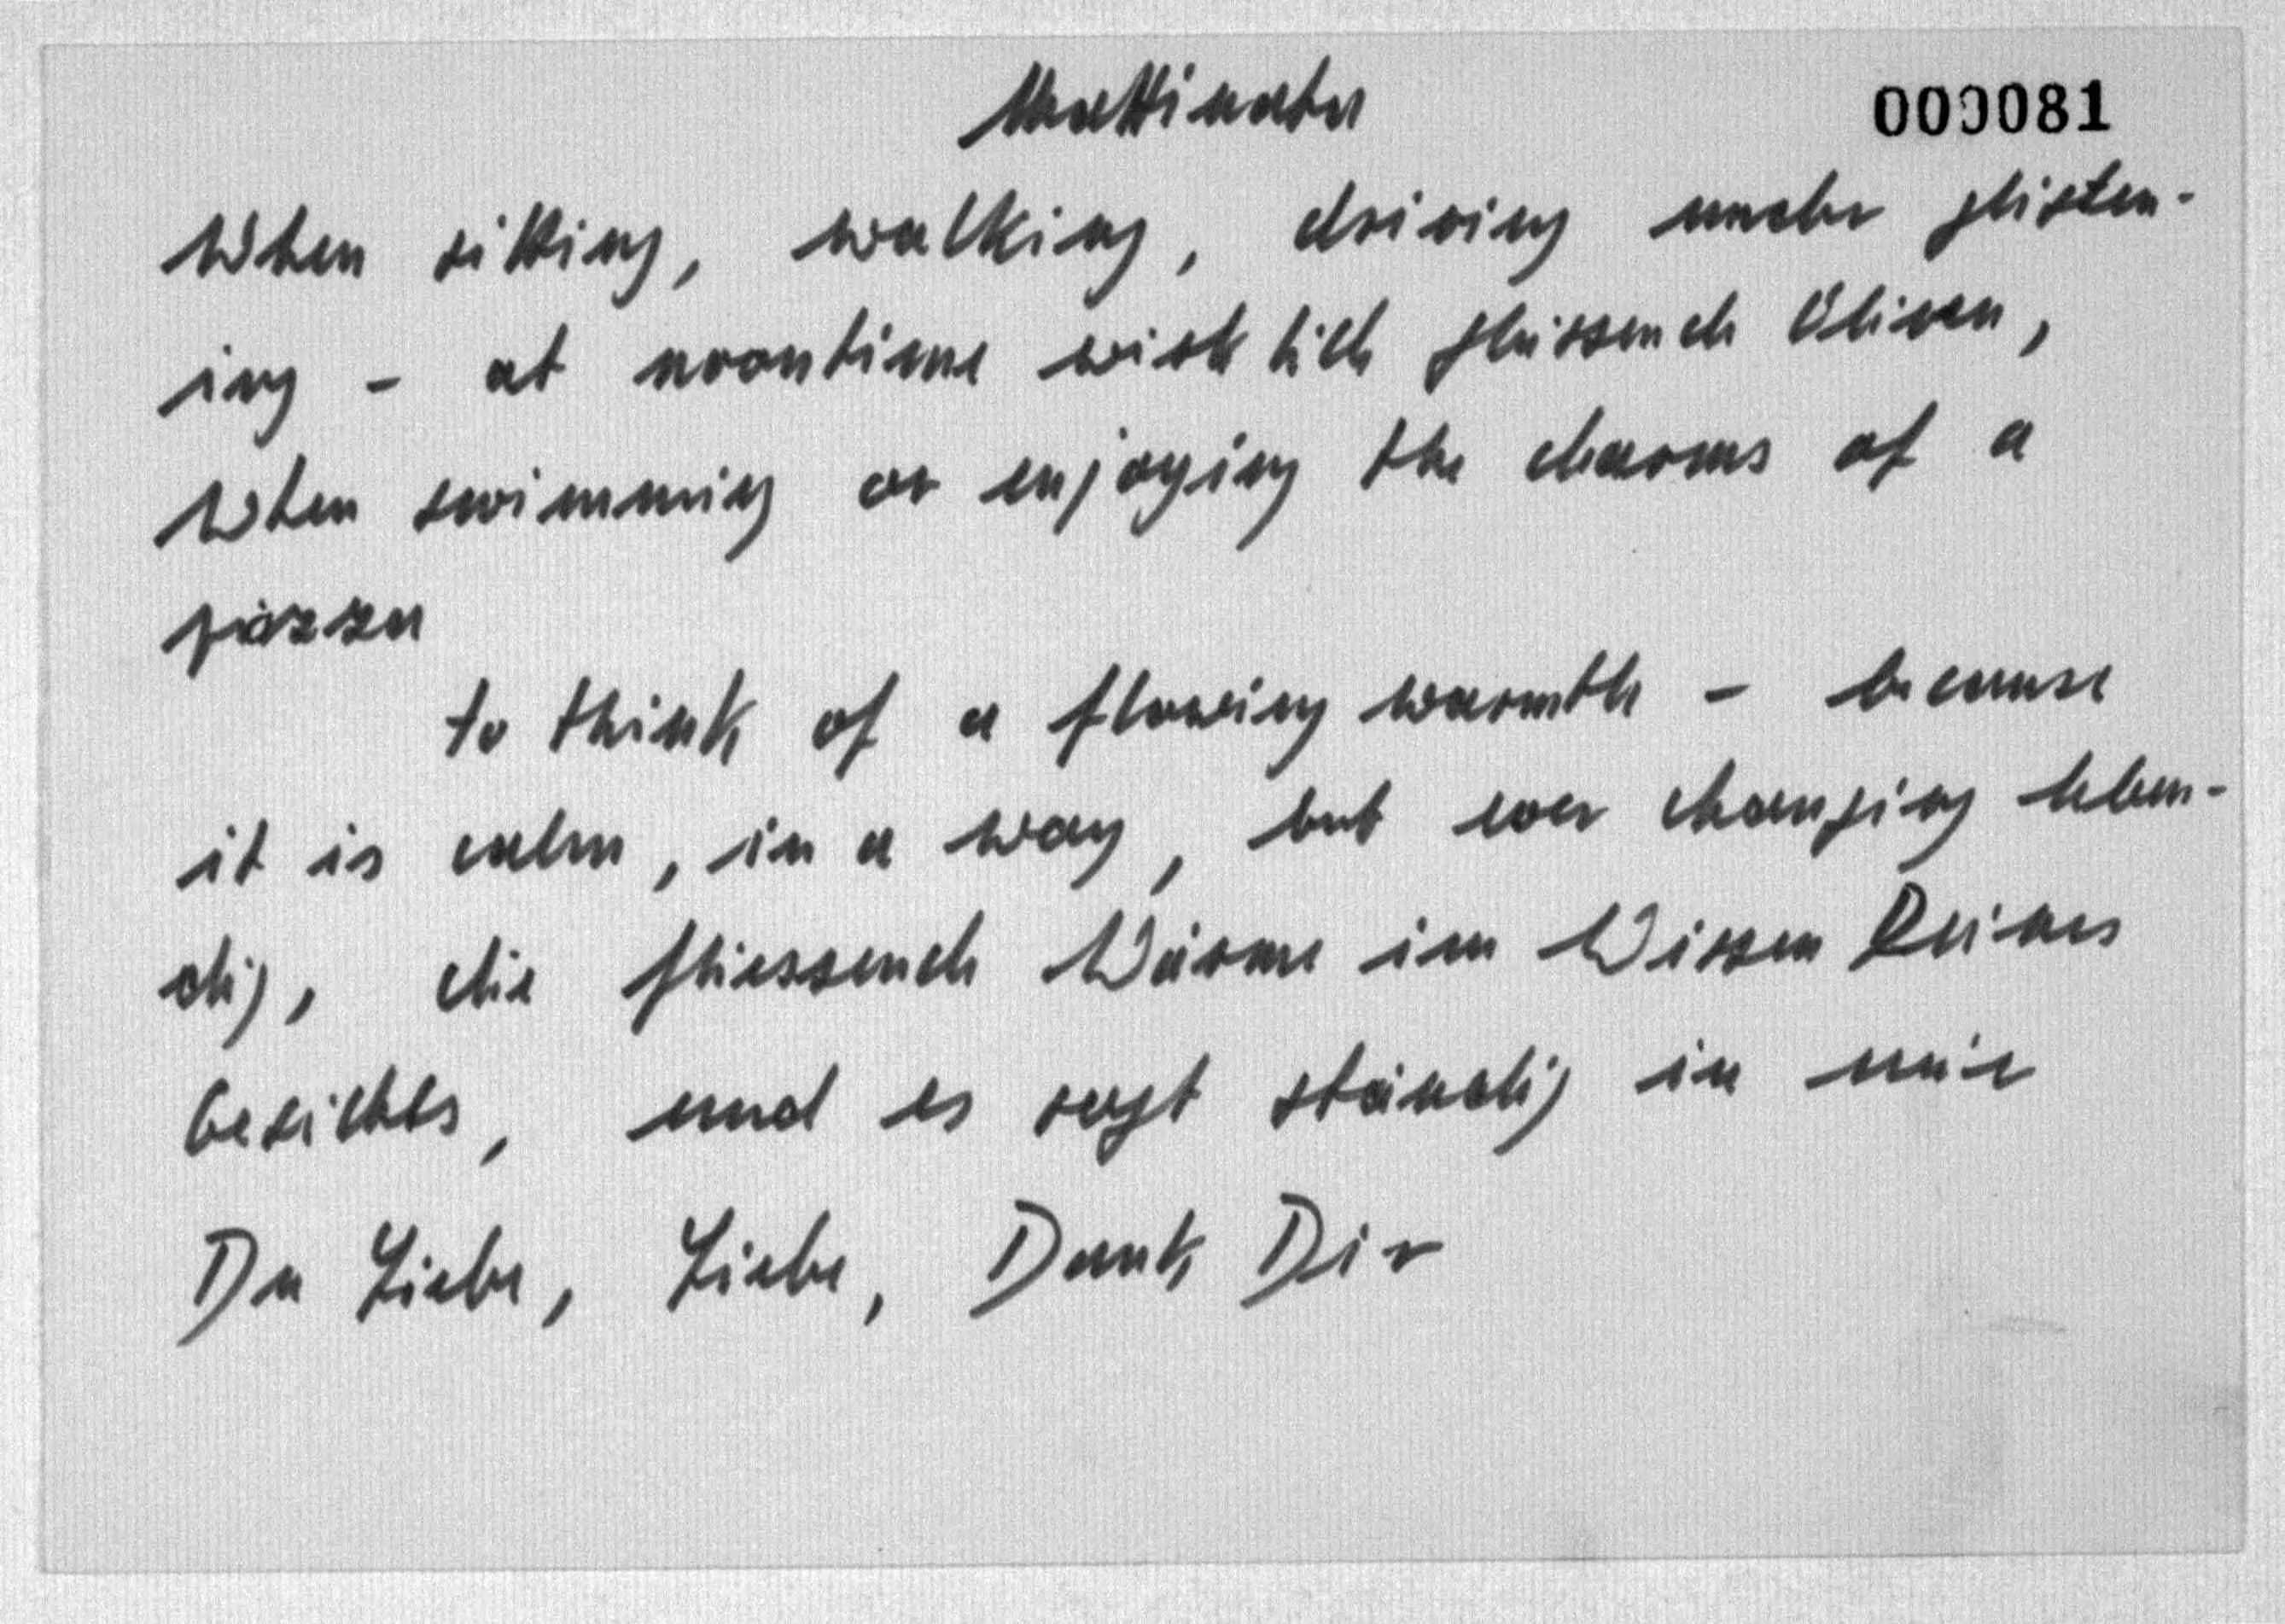 Mattinata
000081
When sitting, walking, driving under glisten-
ing - at noontime wirklich gleissende Oliven,
When swimming or enjoying the charms of a
piazza
to think of a flowing warmth - because
it is calm, in a way, but ever changing leben-
dig, die fliessende Wärme im Wissen Deines
Gesichtes, und es sagt ständig in mir
Du Liebe, Liebe, Dank Dir